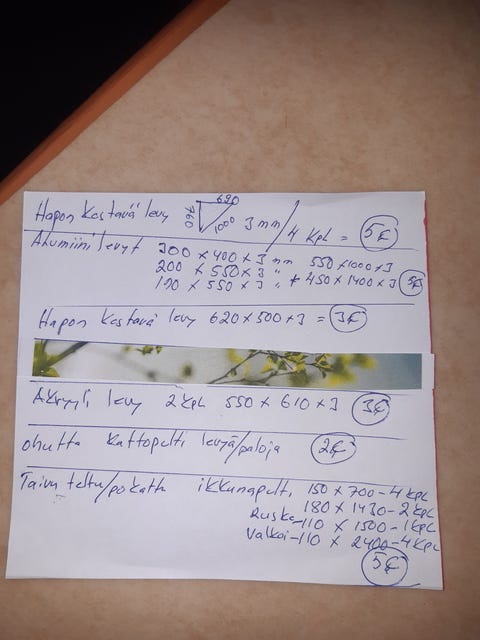 Hapon Kestävä levy 760 620 1000 3 mm/4 Kpl = 5€
Alumiini levyt 300 x 400 x 3 mm 550 x 1000 x 3
200 x 550 x 3 " + 450 x 1400 x 3 5€
120 x 550 x 3 "
Hapon Kestävä levy 620 x 500 x 3 = 3€
Akryyli levy 2 kpl 550 x 610 x 3 3€
ohutta Kattopelti levyä/paloja 2€
Taivutettu/pokattu ikkunapelti 150 x 700 - 4 kpl
180 x 1430 - 2 kpl
Ruske - 110 x 1500 - 1 kpl
Valkoi - 110 x 2400 - 4 kpl
5€